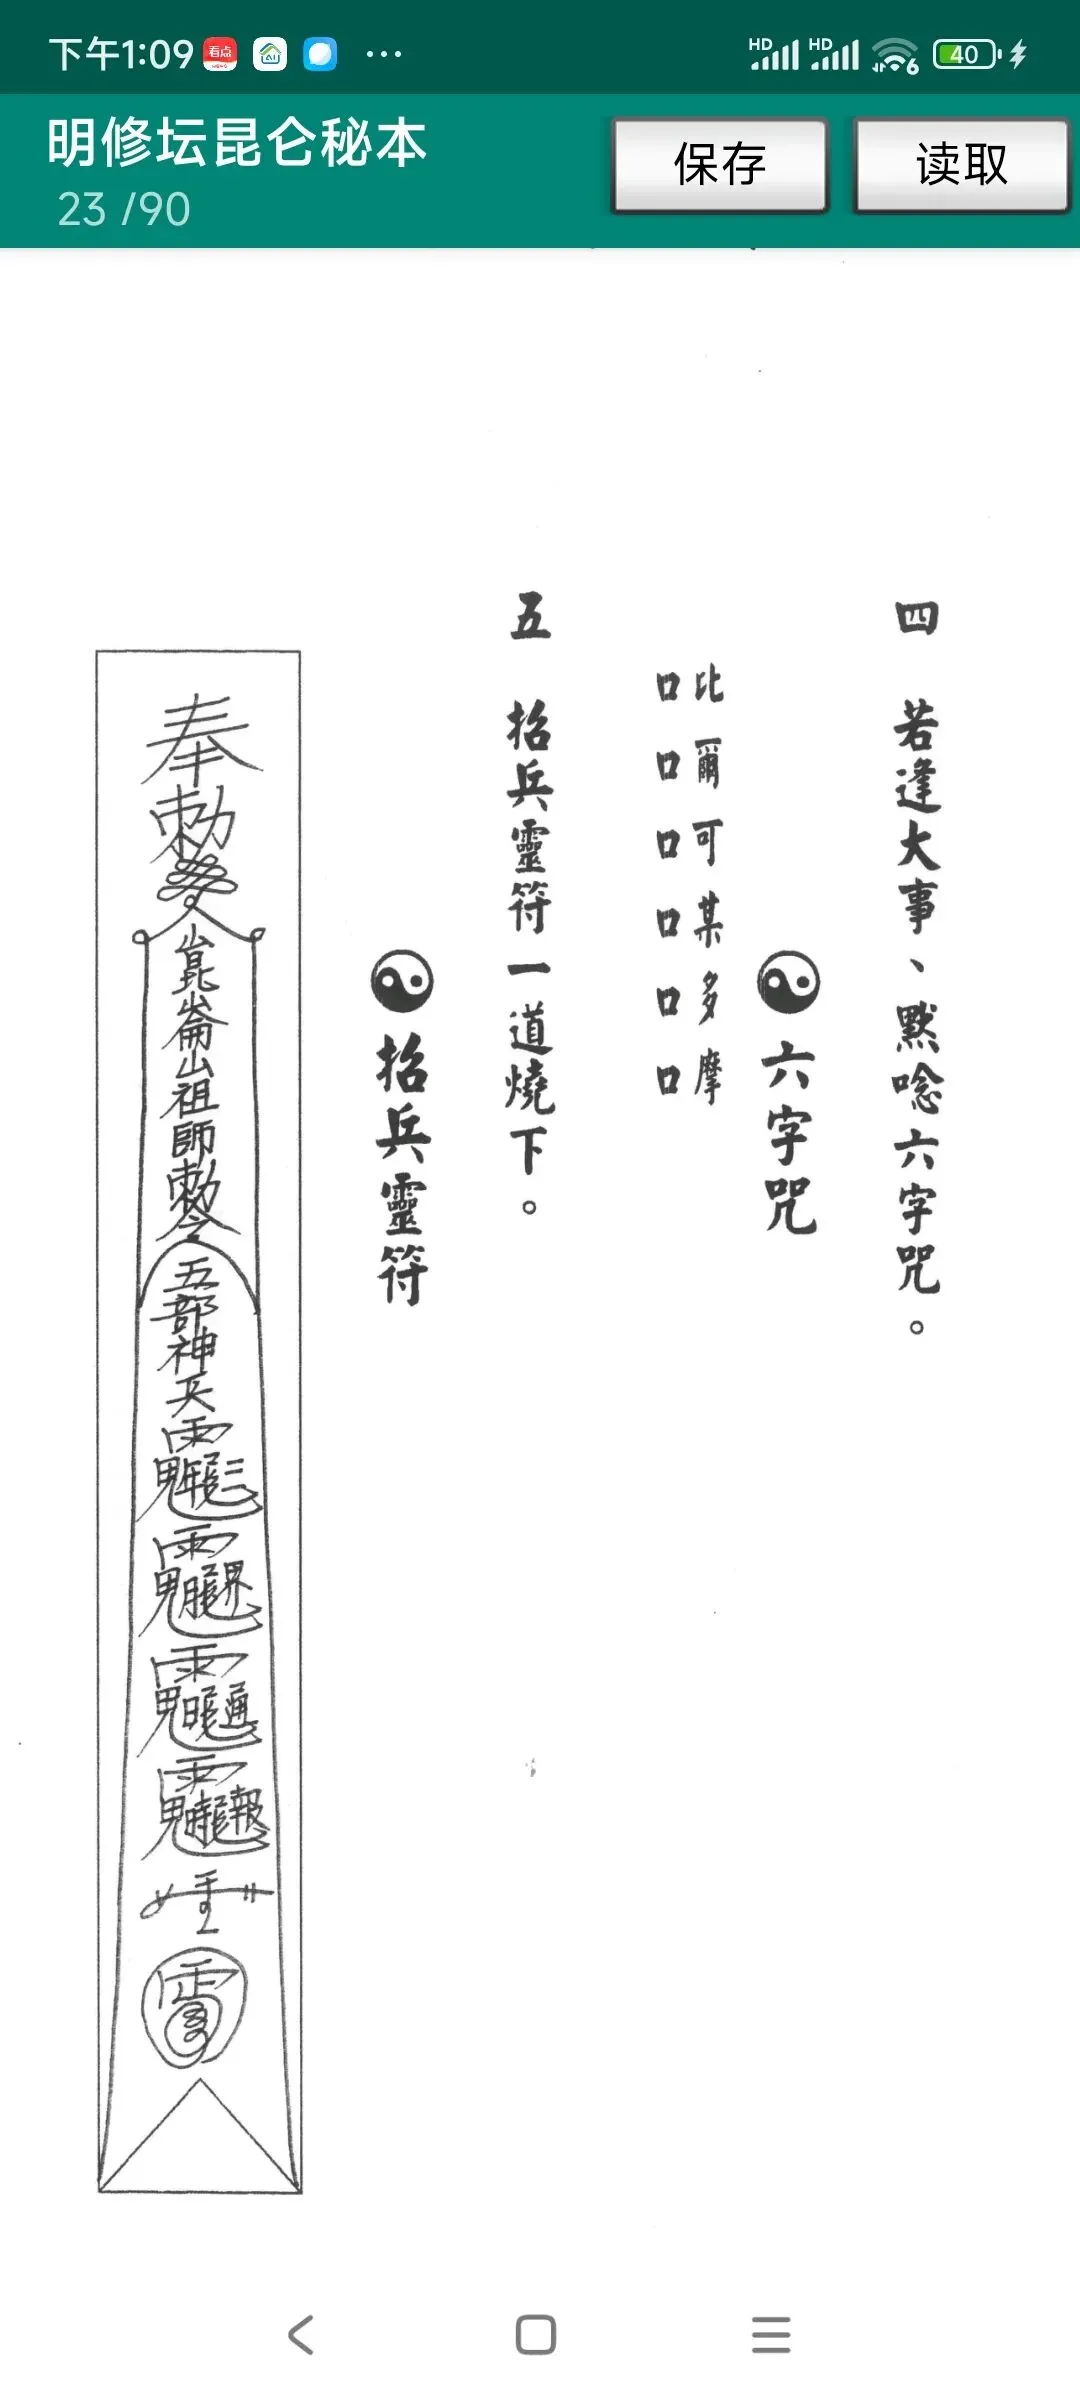 下午1:09
看点
AI
HD
HD
6
40
明修坛昆仑秘本
23 /90
保存
读取
四 若逢大事、默唸六字咒。
六字咒
比爾可某多摩
口口口口口口
五 招兵靈符一道燒下。
招兵靈符
奉
勅
崑崙山祖師勅令
五部神兵